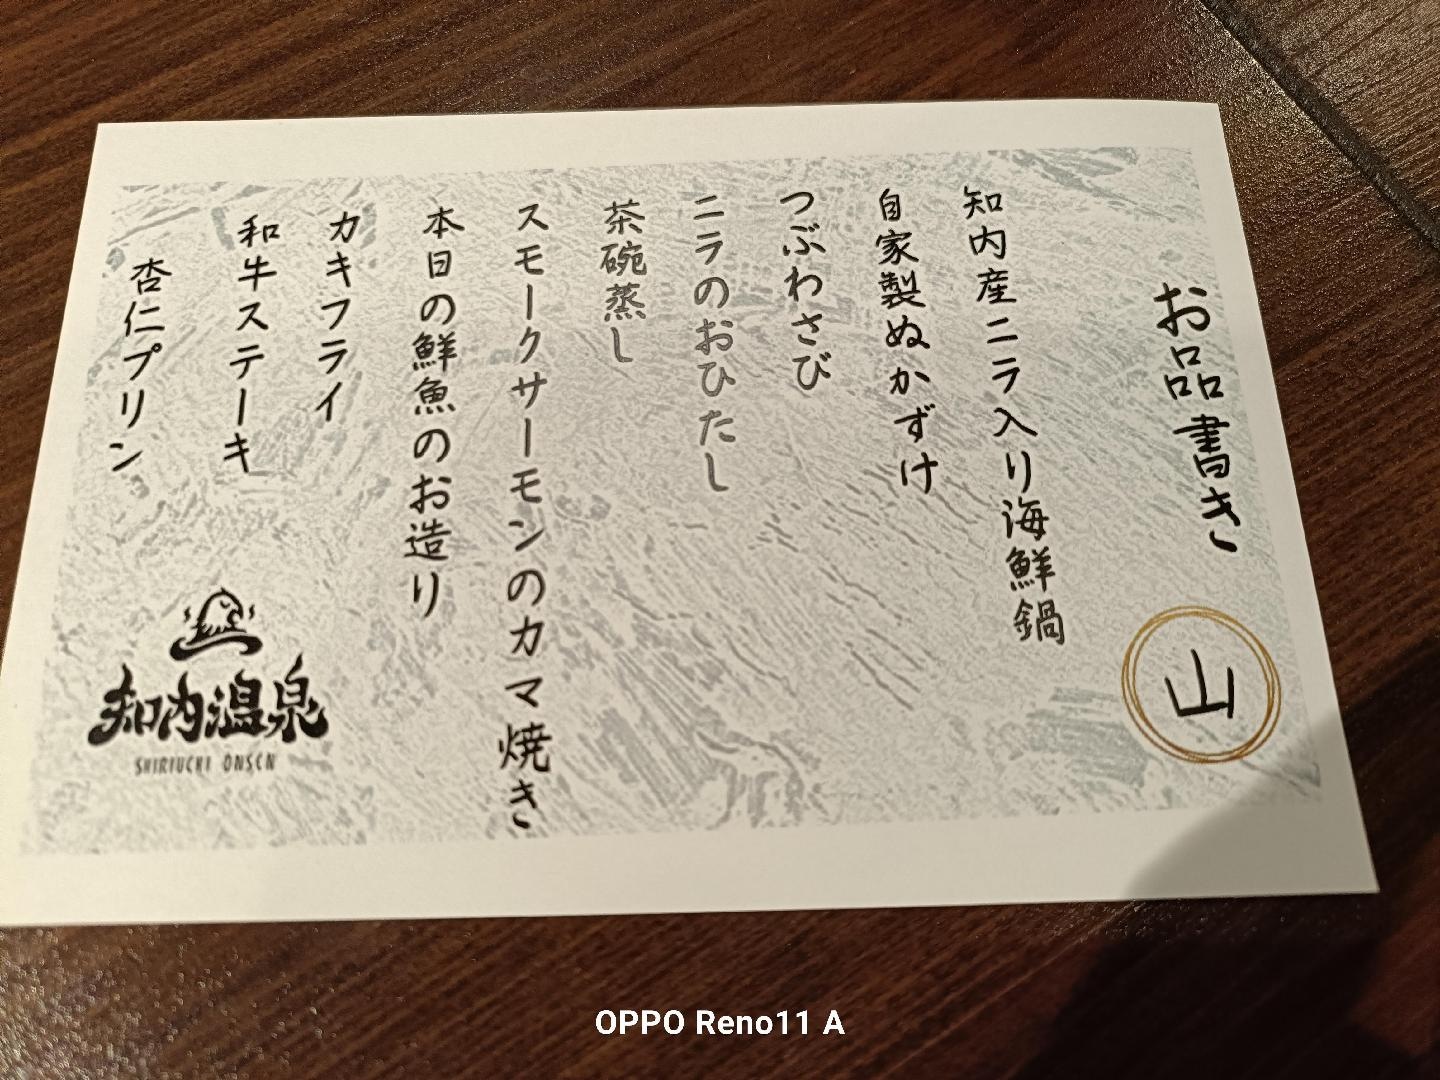 お品書き
山
知内産ニラ入り海鮮鍋
自家製ぬかずけ
つぶわさび
ニラのおひたし
茶碗蒸し
スモークサーモンのカマ焼き
本日の鮮魚のお造り
カキフライ
和牛ステーキ
杏仁プリン
知内温泉
SHIRIUCHI ONSEN
OPPO Reno11 A